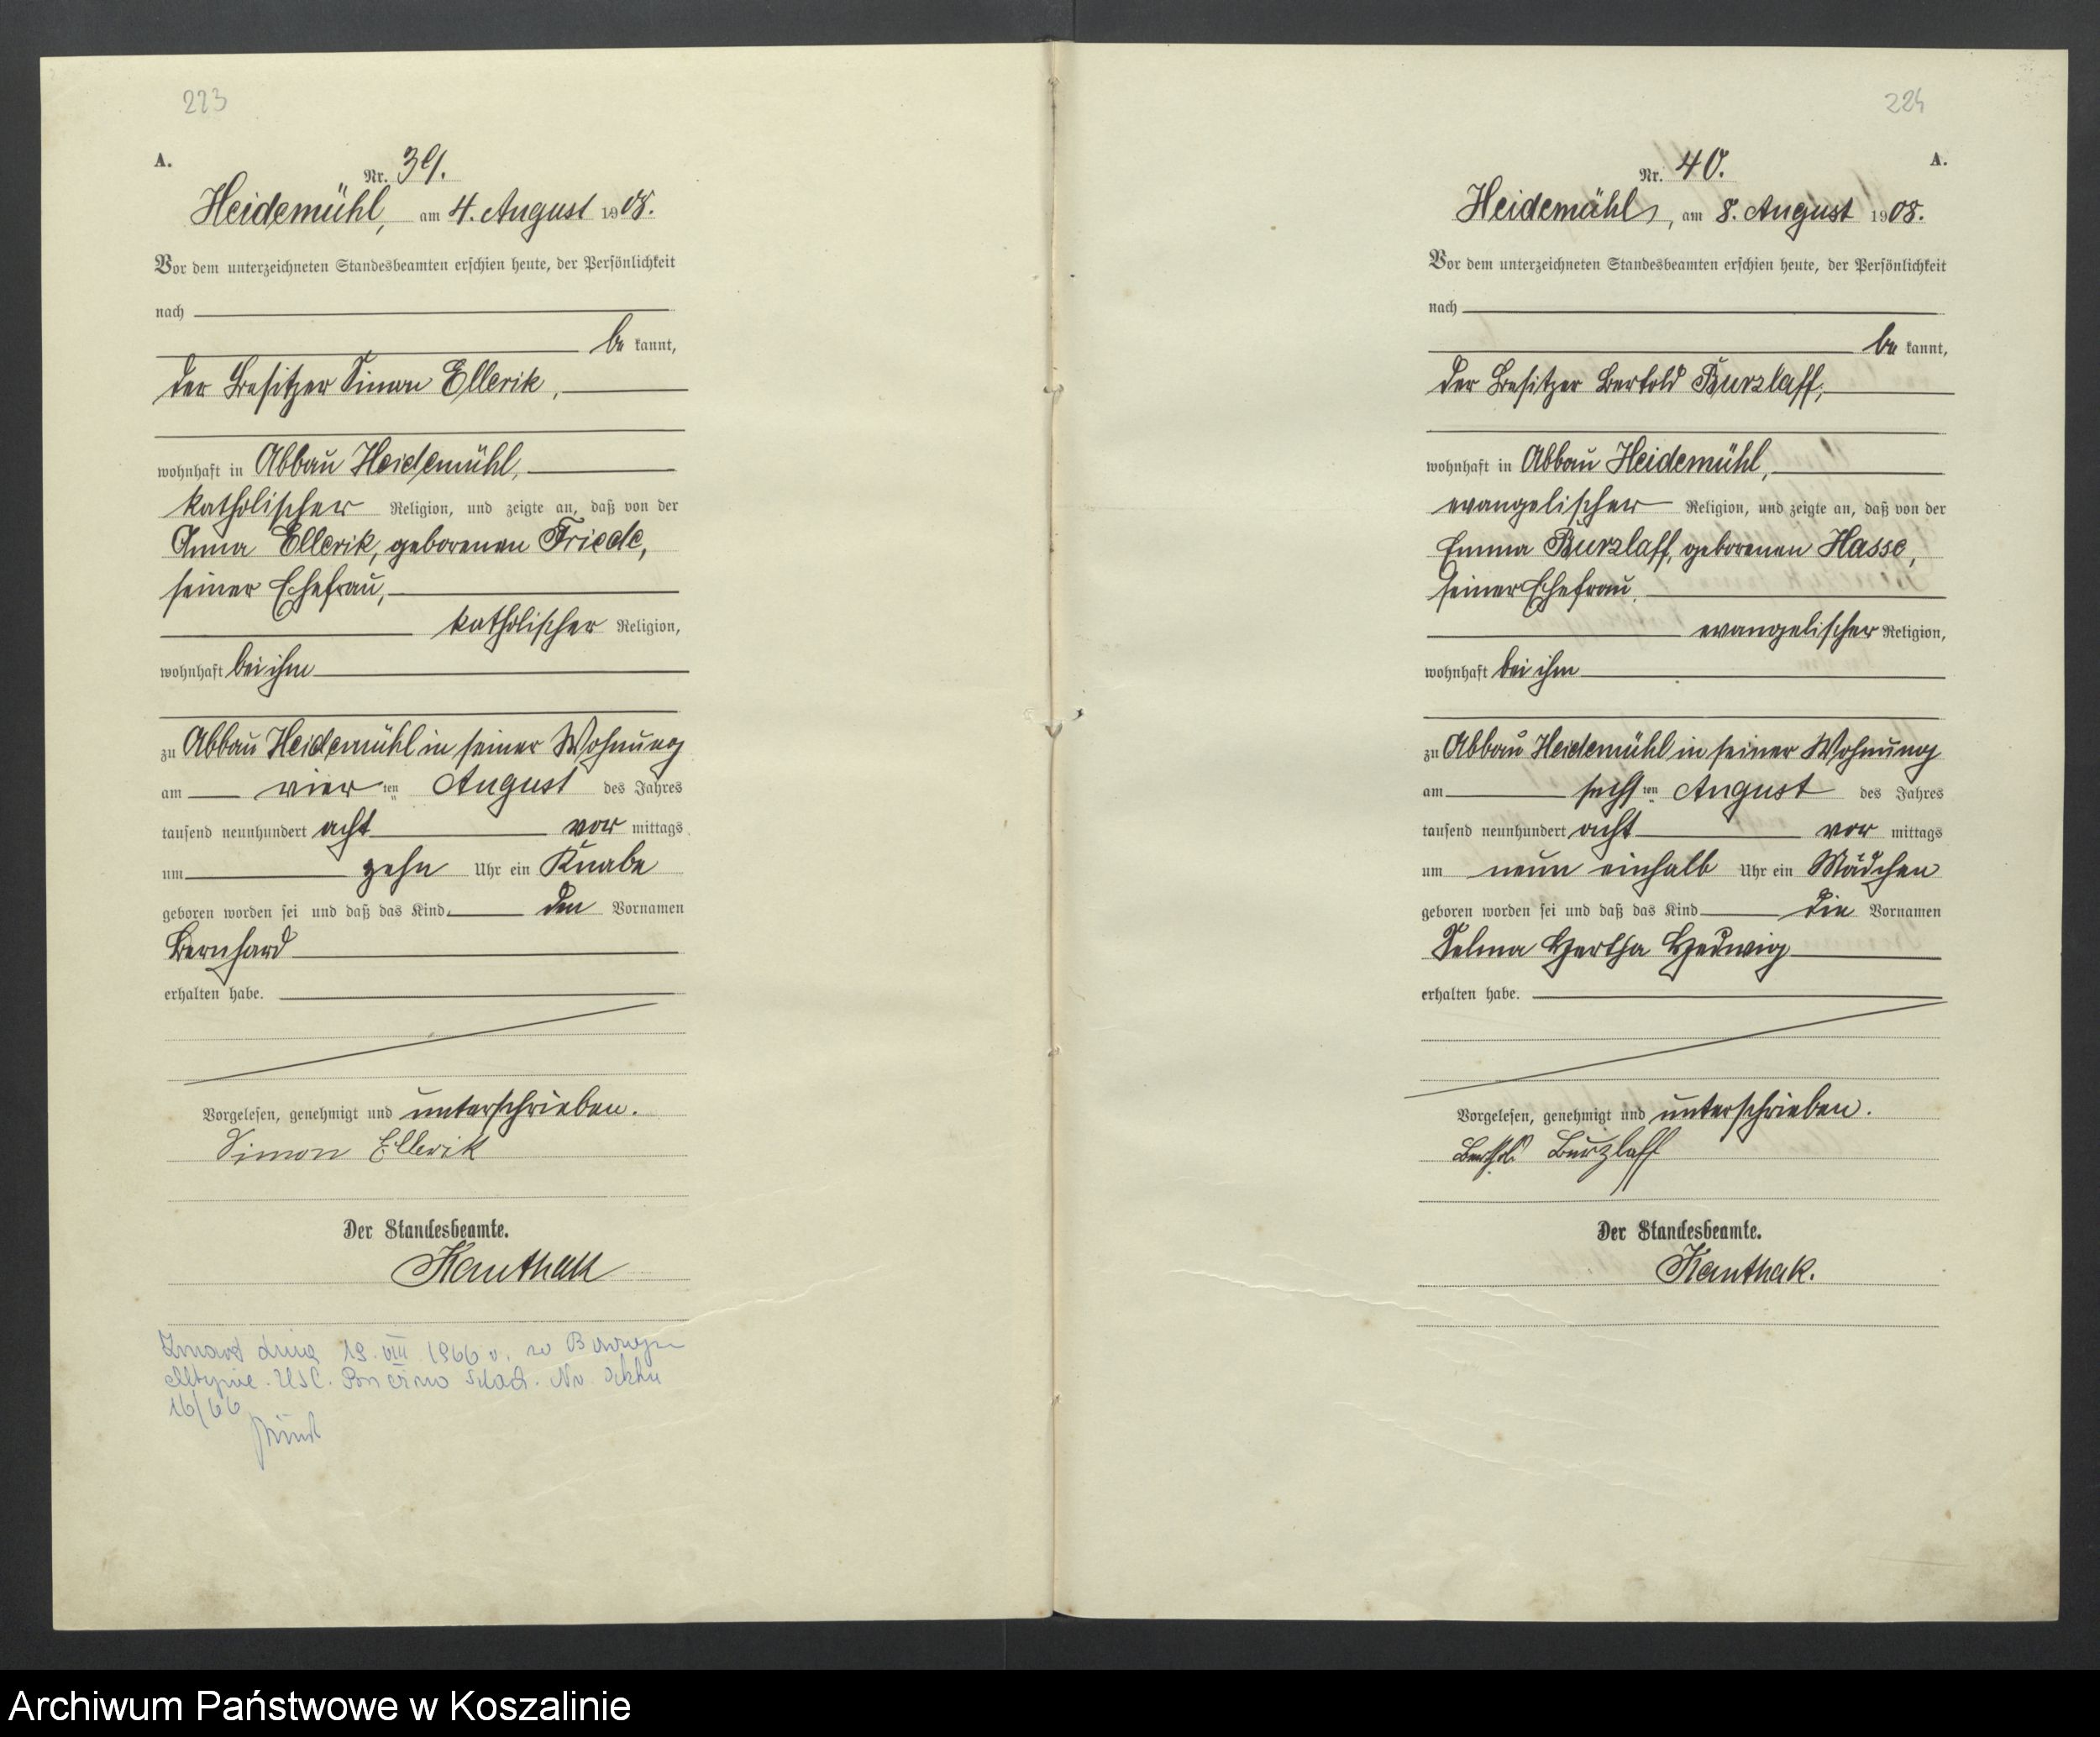 223
A.
Nr. 39.
Heidemühl, am 4. August 1908.
Vor dem unterzeichneten Standesbeamten erschien heute, der Persönlichkeit
nach
be kannt,
der Besitzer Simon Ellerik,
wohnhaft in Abbau Heidemühl,
katholischer Religion, und zeigte an, daß von der
Anna Ellerik, geborenen Friede,
seiner Ehefrau,
katholischer Religion,
wohnhaft bei ihm
zu Abbau Heidemühl in seiner Wohnung
am vier ten August des Jahres
tausend neunhundert acht vor mittags
um zehn Uhr ein Knabe
geboren worden sei und daß das Kind den Vornamen
Bernhard
erhalten habe.
Vorgelesen, genehmigt und unterschrieben.
Simon Ellerik
Der Standesbeamte.
Kanthak
19. VIII 1966 r. w
USC. Nr. Aktu
16/66
224
A.
Nr. 40.
Heidemühl, am 8. August 1908.
Vor dem unterzeichneten Standesbeamten erschien heute, der Persönlichkeit
nach
be kannt,
der Besitzer Bertold Burzlaff,
wohnhaft in Abbau Heidemühl,
evangelischer Religion, und zeigte an, daß von der
Emma Burzlaff, geborenen Hasse,
seiner Ehefrau,
evangelischer Religion,
wohnhaft bei ihm
zu Abbau Heidemühl in seiner Wohnung
am sechs ten August des Jahres
tausend neunhundert acht vor mittags
um neun einhalb Uhr ein Mädchen
geboren worden sei und daß das Kind die Vornamen
Selma Hertha Hedwig
erhalten habe.
Vorgelesen, genehmigt und unterschrieben.
Berthold Burzlaff
Der Standesbeamte.
Kanthak.
Archiwum Państwowe w Koszalinie